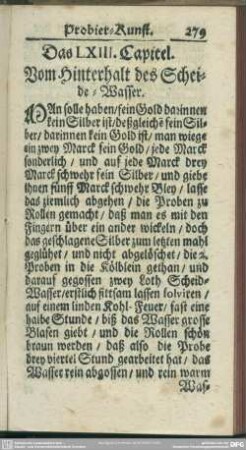 Probier-Kunst. 279
Das LXIII. Capitel.
Vom Hinterhalt des Schei-
de-Wasser.
MAn solle haben/ fein Gold darinnen
kein Silber ist/ deßgleichē fein Sil-
ber/ darinnen kein Gold ist/ man wiege
ein zwey Marck fein Gold/ jede Marck
sonderlich/ und auf jede Marck drey
Marck schwehr fein Silber/ und giebe
ihnen fünff Marck schwehr Bley/ lasse
das ziemlich abgehen/ die Proben zu
Rollen gemacht/ daß man es mit den
Fingern über ein ander wickeln/ doch
das geschlagene Silber zum letzten mahl
geglühet/ und nicht abgelöschet/ die 2.
Proben in die Kölblein gethan/ und
darauf gegossen zwey Loth Scheid-
Wasser/ erstlich sittsam lassen solviren/
auf einem linden Kohl-Feuer/ fast eine
halbe Stunde/ biß das Wasser grosse
Blasen giebt/ und die Rollen schön
braun werden/ daß also die Probe
drey viertel Stund gearbeitet hat/ das
Wasser rein abgossen/ und rein warm
Was-